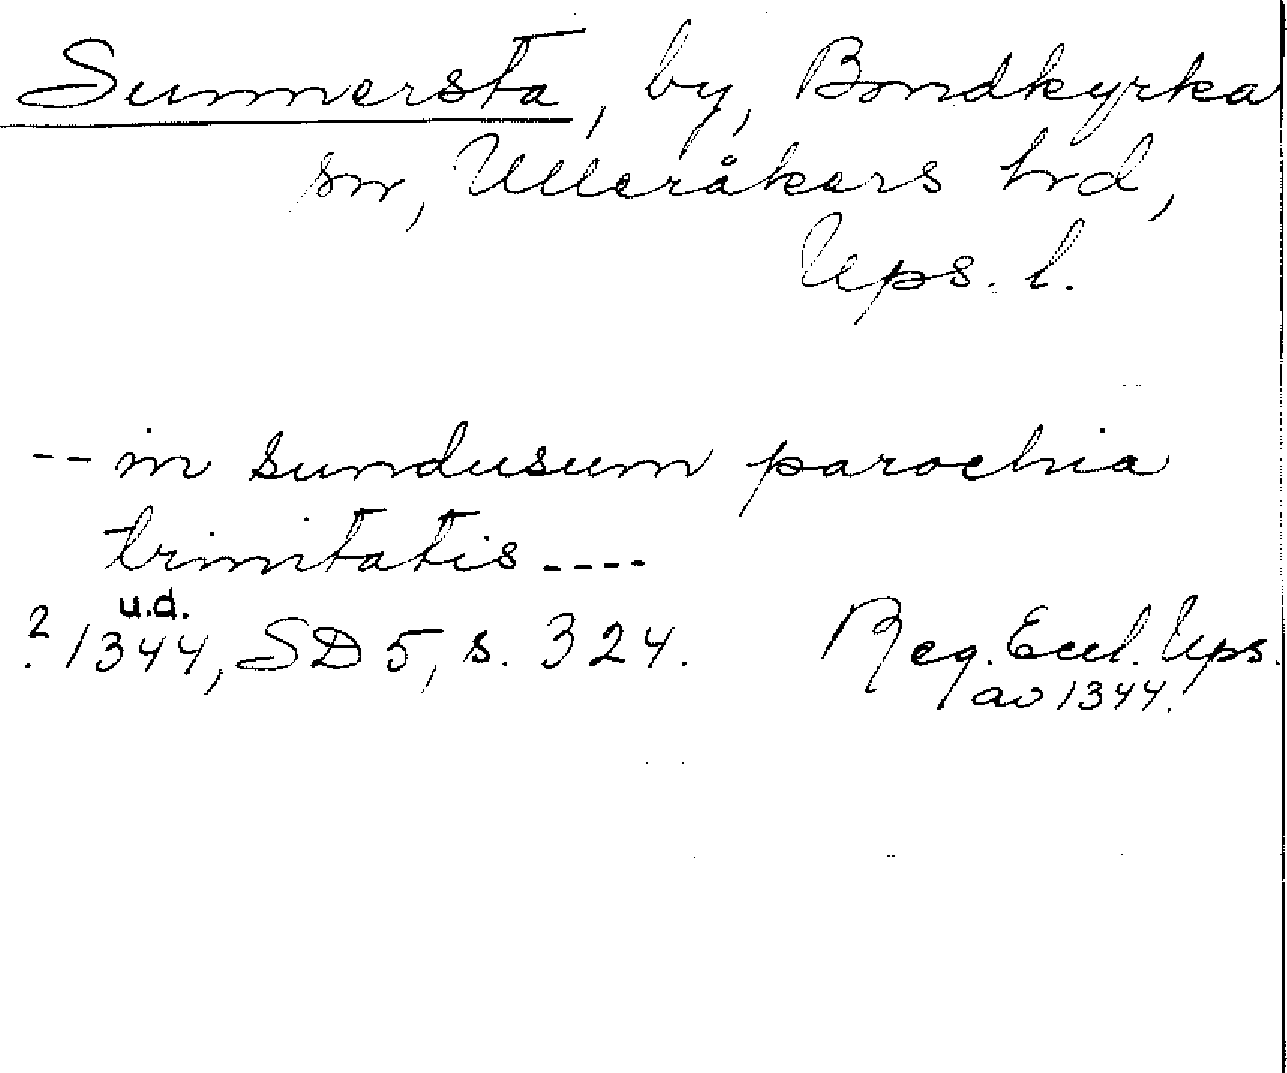 Sunnersta, by, Bondkyrka
sn, Ulleråkers hrd,
Ups. l.
-- in sundusum parochia
trinitatis ----
u.d.
? 1344, SD 5, s. 324. Reg. Eccl. Ups.
av 1344.